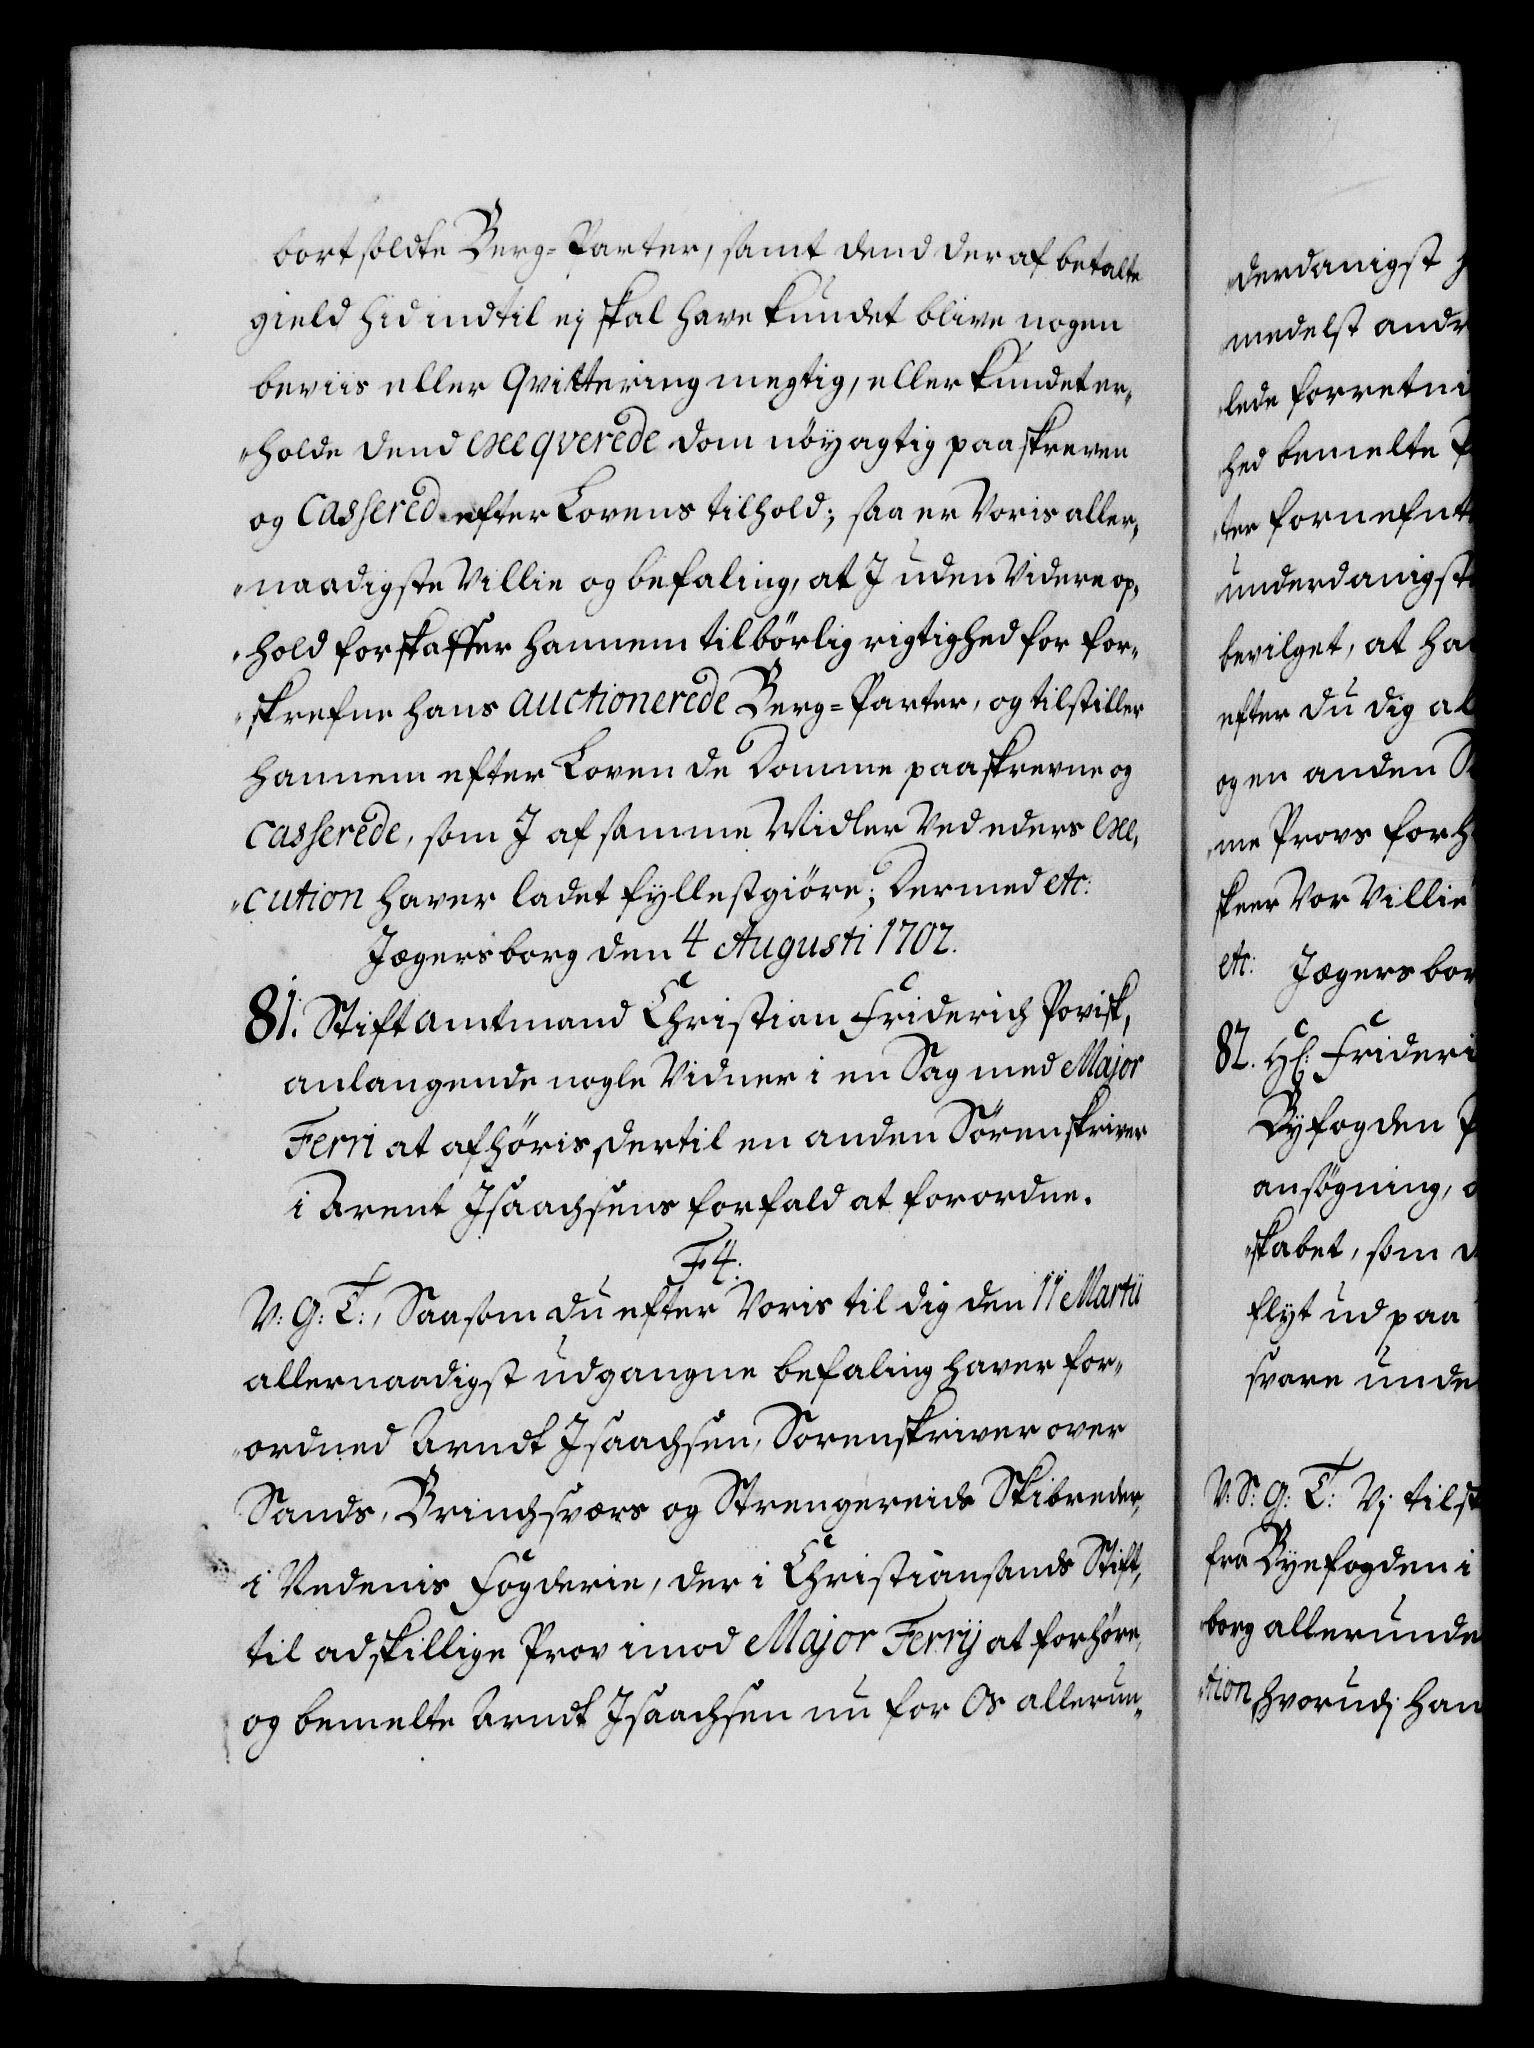 bortsoldte Berg-Parter, samt dend deraf betalte
gield hid indtil ej skal have kundet blive nogen
beviis eller Qvittering megtig, eller kundet er-
holde dend exeqverede dom nöyagtig paaskreven
og Cassered efter Lovens tilhold; saa er Voris aller-
naadigste Villie og befaling, at J uden Videre op-
hold forskaffer hannem tilbörlig rigtighed for for-
skrefne hans auctionerede Berg-Parter, og tilstiller
hannem efter Loven de Domme paaskrevne og
Casserede, som J af samme Midler Ved eders exe-
cution haver ladet fyllestgiöre; Dermed etc:
Jægersborg den 4 Augusti 1702.
81. Stiftamtmand Christian Friderich Povisk,
anlangende nogle Vidner i en Sag med Major
Ferri at afhöris, dertil en anden Sörenskriver
i Arent Jsaachsens forfald at forordne.
F4:
V: G: T:, Saasom du efter Voris til dig den 11 Martii
allernaadigst udgangne befaling haver for-
ordned Arndt Jsaachsen, Sorenskriver over
Sands, Brinchsværs og Strengereids Skibreder,
i Nedenis Fogderie, der i Christiansands Stift,
til adskillige Prov imod Major Ferry at forhöre,
og bemelte Arndt Jsaachsen nu for Os allerun-
derdanigst
medelst andr
lede forretni
hed bemelte P
ter fornefnte
underdanigst
bevilget, at ha
efter du dig al
og en anden S
me Provs forh
skeer Vor Villie
etc: Jægersbor
82. Hr: Frideri
Byfogden P
ansögning,
skabet, som
flyt ud paa
svare unde
V: S: G: T: Vj tilst
fra Byefogden i
borg allerunde
tion, hvorudj han